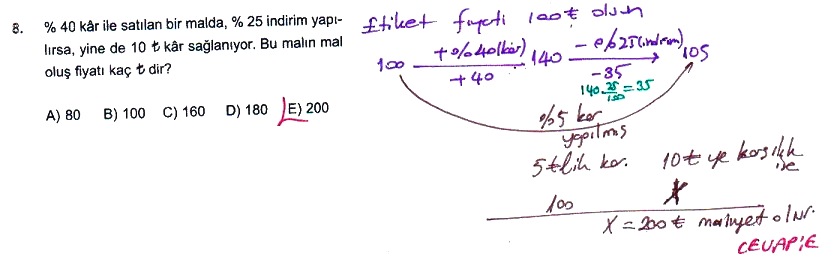 8. % 40 kâr ile satılan bir malda, % 25 indirim yapı-
lırsa, yine de 10 ₺ kâr sağlanıyor. Bu malın mal
oluş fiyatı kaç ₺ dir?
A) 80 B) 100 C) 160 D) 180 E) 200
Etiket fiyatı 100₺ olsun
100 +%40(kâr) 140 -%25(indirim) 105
+40 -35
140.25/100=35
%5 kar
yapılmış
5₺lik kar. 10₺ ye karşılık
ise
100 X
X=200₺ maliyet olur.
CEVAP:E